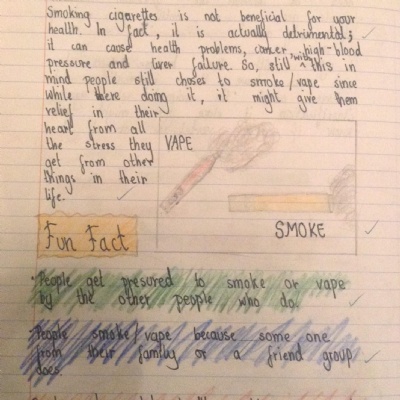 Smoking cigarettes is not beneficial for your
health. In fact, it is actually detrimental;
it can cause health problems, cancer, high-blood
pressure and liver failure. So, still with this in
mind people still choses to smoke/vape since
while there doing it, it might give them
relief in their
heart from all
the stress they
get from other
things in their
life.
VAPE
SMOKE
Fun Fact
People get presured to smoke or vape
by the other people who do.
People smoke/vape because some one
from their family or a friend group
does.